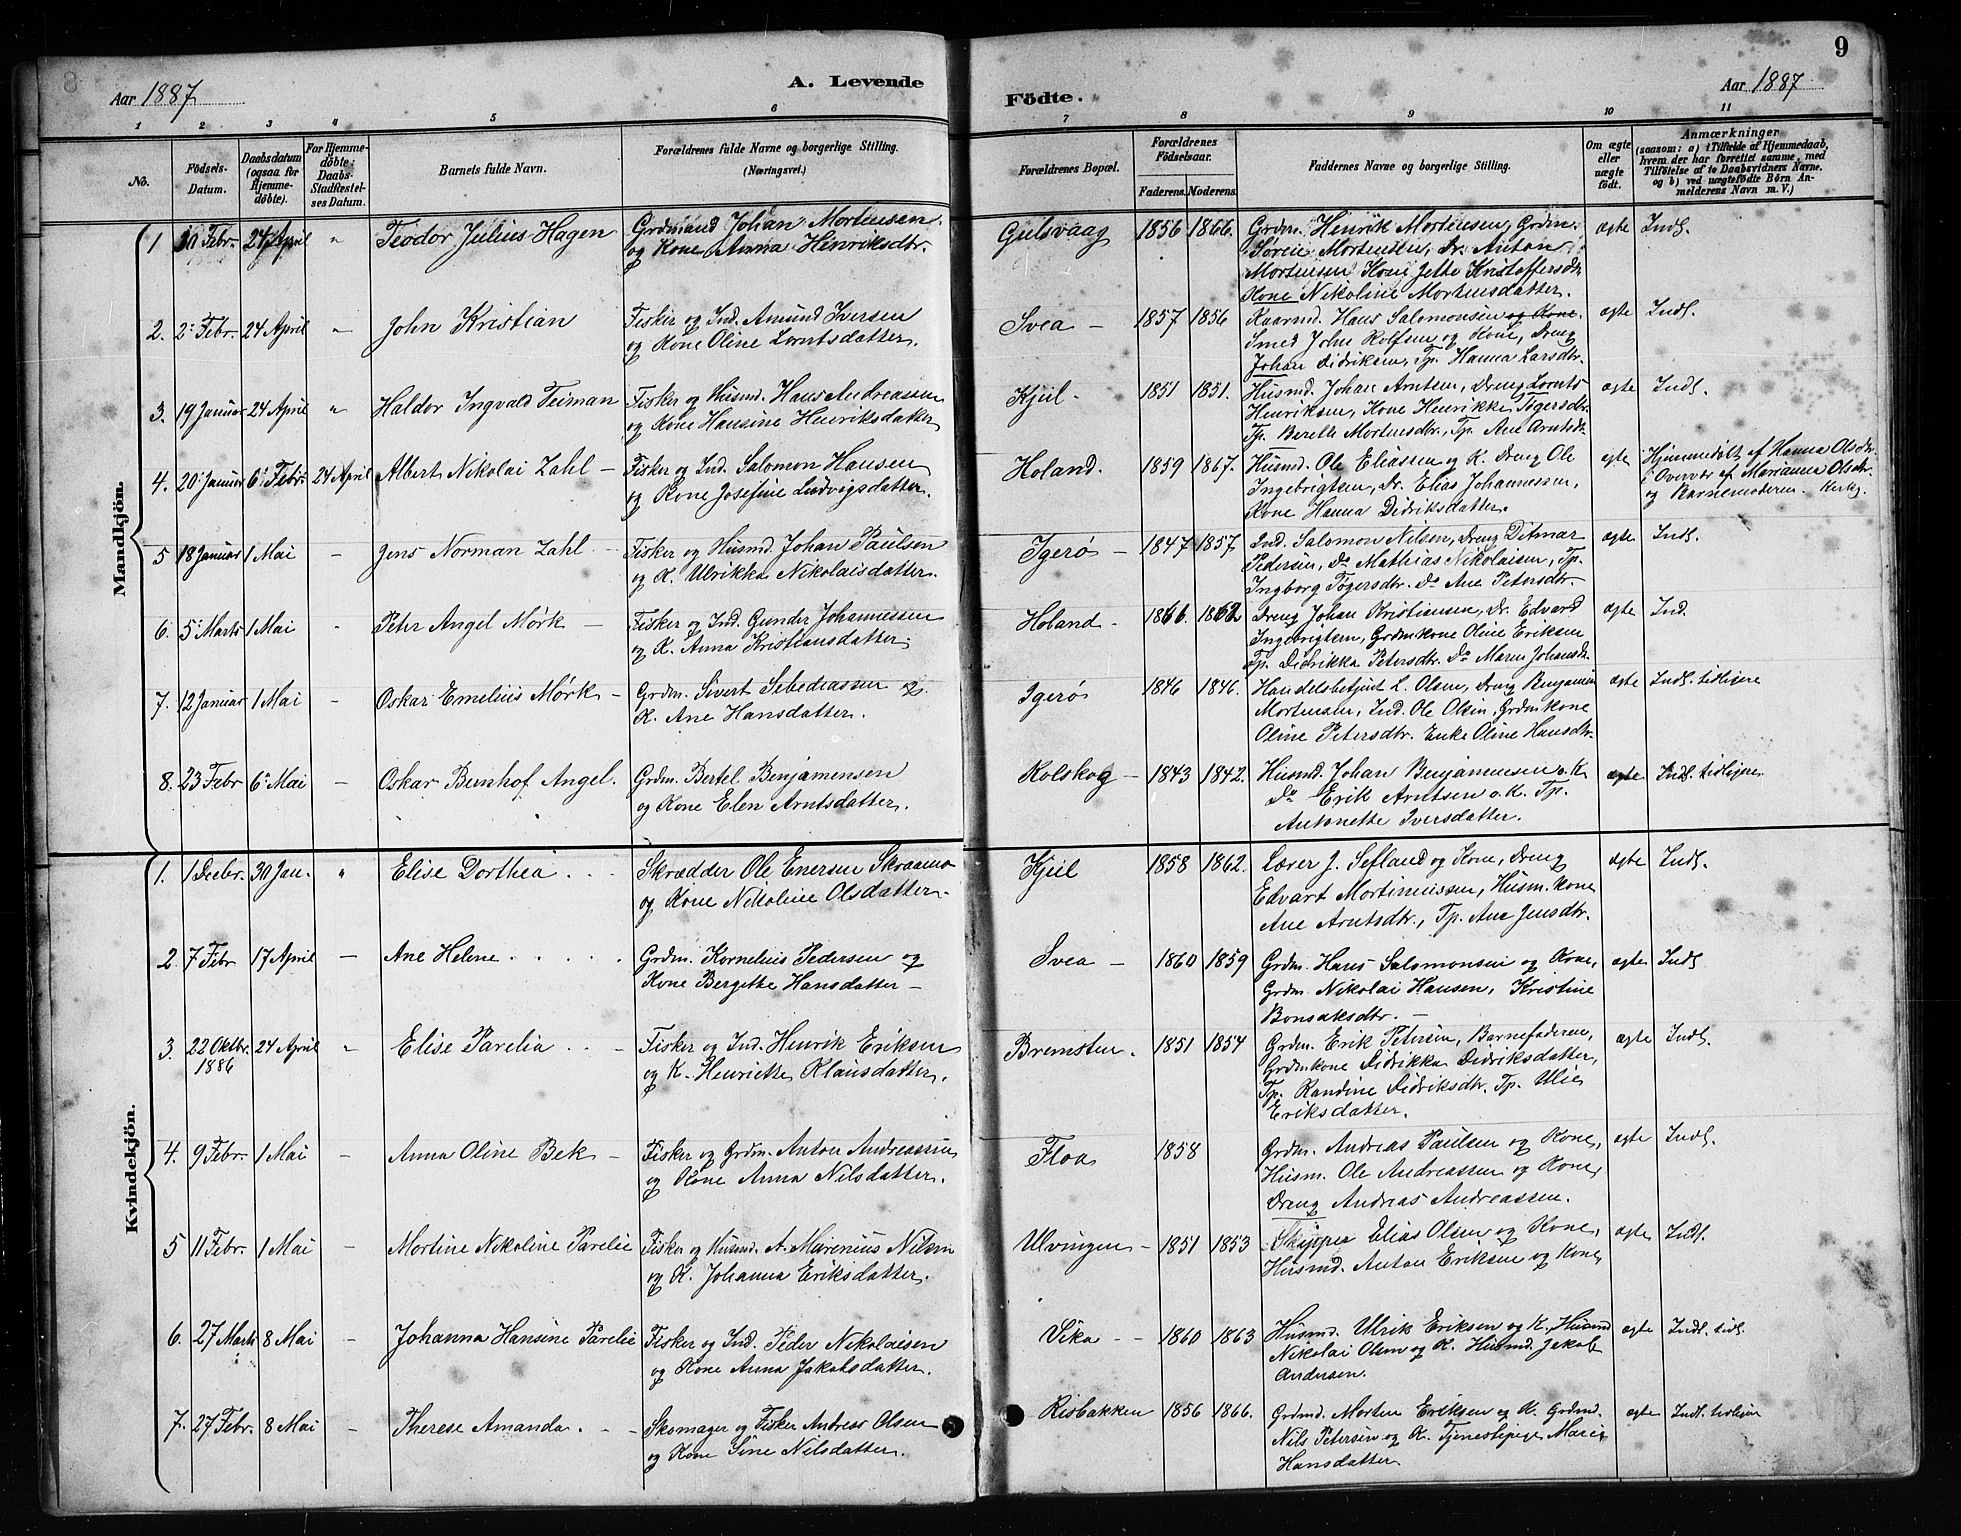 8
Aar 1887
A. Levende
Födte.
Aar 1887
9
1 2 3 4 5 6 7 8 9 10 11
No.
Födsels-
Datum.
Daabsdatum
(ogsaa for
Hjemme-
döbte).
For Hjemme-
döbte:
Daabs-
Stadfæstel-
ses Datum.
Barnets fulde Navn.
Forældrenes fulde Navne og borgerlige Stilling.
(Næringsvei.)
Forældrenes Bopæl.
Forældrenes
Födselsaar.
Faderens. Moderens.
Faddernes Navne og borgerlige Stilling.
Om ægte
eller
uægte
födt.
Anmærkninger
(saasom: a) i Tilfælde af Hjemmedaab,
hvem der har forrettet samme, med
Tilföielse af to Daabsvidners Navne,
og b) ved uægtefödte Börn An-
melderens Navn m. V.)
Mandkjön.
1 10 Febr. 24 April " Teodor Julius Hagen Grdmand Johan Mortensen Gulsvaag 1856 1866. Grdm. Henrik Mortensen, Grdm. ægte Indl.
og Kone Anna Henriksdtr. Søren Mortensen, Dr. Anton
Mortensen Kone Jette Kristoffersdtr
Kone Nikoline Mortensdatter.
2. 2 Febr. 24 April " John Kristian Fisker og Ind. Amund Iversen Svea – 1857 1856 Kaarmd. Hans Salomonsen og Kone. ægte Indl.
og Kone Oline Lorntsdatter. Smed John Rolfsen og Kone, Dreng
Johan Didriksen, Tp. Hanna Larsdtr.
3. 19 Januar 24 April " Haldor Ingvald Teiman Fisker og Husmd. Hans Andreassen Kjul - 1851 1851. Husmd. Johan Arntsen, Dreng Lornts ægte Indl.
og Kone Hansine Henriksdatter Henriksen, Kone Henrikke Tøgersdtr.
Tp. Berelle Mortensdtr., Tp. Ane Arntsdtr.
4. 20 Januar 6 Febr. 24 April Albert Nikolai Zahl – Fisker og Ind. Salomon Hansen Holand. 1859 1867. Husmd. Ole Eliassen og K. Dreng Ole ægte Hjemmedøbt af Hanna Olsdtr
og Kone Josefine Ludvigsdatter. Ingebrigtsen, Dr. Elias Johannessen, i Overvær af Marianna Olsdtr.
Kone Hanna Didriksdatter. og Barnemoderen.
5 18 Januar 1 Mai – Jens Norman Zahl – Fisker og Husmd. Johan Paulsen Igerø – 1847 1857 Ind. Salomon Nilsen, Dreng Ditmar ægte Indl.
og K. Ulrikka Nikolaisdatter. Pedersen, Do Mathias Nikolaisen, Tp.
Ingborg Tøgersdtr. Do Ane Petersdtr.
6. 5 Marts 1 Mai - Peter Angel Mørk – Fisker og Ind. Gunder Johannessen Holand - 1866. 1862 Dreng Johan Kristiansen, Dr. Edvard ægte Ind.
og K. Anna Kristiansdatter. Ingebrigtsen, Grdmkone Oline Eriksen
Tp. Didrikka Petersdtr. Do Maren Johansdtr.
7. 12 Januar 1 Mai - Oskar Emelius Mørk – Grdm. Sivert Sebediassen og Igerø 1846 1846. Handelsbetjent L. Olsen, Dreng Benjamin ægte Indl. tidligere
K. Ane Hansdatter. Mortensen, Ind. Ole Olsen, Grdmkone
Oline Petersdtr. Enke Oline Hansdtr.
8. 23 Febr 6 Mai – Oskar Bernhof Angel. Grdm. Bertel Benjamensen Kolskog – 1843 1842. Husmd. Johan Benjamensen o. K ægte Indl. tidligere
og Kone Elen Arntsdatter. Do Erik Arntsen o. K. Tp.
Antonette Iversdatter.
Kvindekjön.
1. 1 Decbr. 30 Jan. " Elise Dorthea . . . Skrædder Ole Enersen Skraamo Kjul 1858 1862. Lærer J. Sefland og Kone, Dreng ægte Indl.
og Kone Nikoline Olsdatter. Edvart Mortinussen, Husm. Kone
Ane Arntsdtr., Tp. Ane Jensdtr.
2. 7 Febr 17 April – Ane Helene . . . . . Grdm. Kornelius Pedersen og Svea – 1860 1859 Grdm. Hans Salomonsen og Kone, ægte Indl
Kone Bergithe Hansdatter – Grdm. Nikolai Hansen, Kristine
Bonsaksdtr. –
3. 22 Oktbr. 24 April " Elise Parelia . . – Fisker og Ind. Henrik Eriksen Bremsten. 1851 1854 Grdm. Erik Petersen, Barnefaderen, ægte Indl.
1886 og K. Henriette Klausdatter. Grdmkone Didrikka Didriksdatter,
Tp. Randine Didriksdtr. Tp. Ulie
Eriksdatter.
4. 9 Febr. 1 Mai – Anna Oline Bek – Fisker og Grdm. Anton Andreassen Floa 1858 Grdm. Andreas Paulsen og Kone, ægte Indl.
og Kone Anna Nilsdatter. Husm. Ole Andreassen og Kone,
Dreng Andreas Andreassen.
5 11 Febr. 1 Mai – Mortine Nikoline Parelie Fisker og Husmd. A. Marenius Nilsen Ulvingen – 1851 1853 Skipper Elias Olsen og Kone, ægte Indl.
og K. Johanna Eriksdatter. Husmd. Anton Eriksen og Kone
6. 27 Marts 8 Mai – Johanna Hansine Parelie Fisker og Ind. Peder Nikolaisen Vika – 1860 1863 Husmd. Ulrik Eriksen og K., Husmd ægte Indl. tidl.
og Kone Anna Jakobsdatter. Nikolai Olsen og K. Husmd. Jakob
Andersen.
7. 27 Febr. 8 Mai – Therese Amanda . – Skomager og Fisker Andreas Olsen Risbakken 1856 1866. Grdmd. Morten Eriksen og K. Grdmd. ægte Indl. tidligere
og Kone Sine Nilsdatter. Nils Petersen og K. Tjenestepige Marie
Hansdatter.